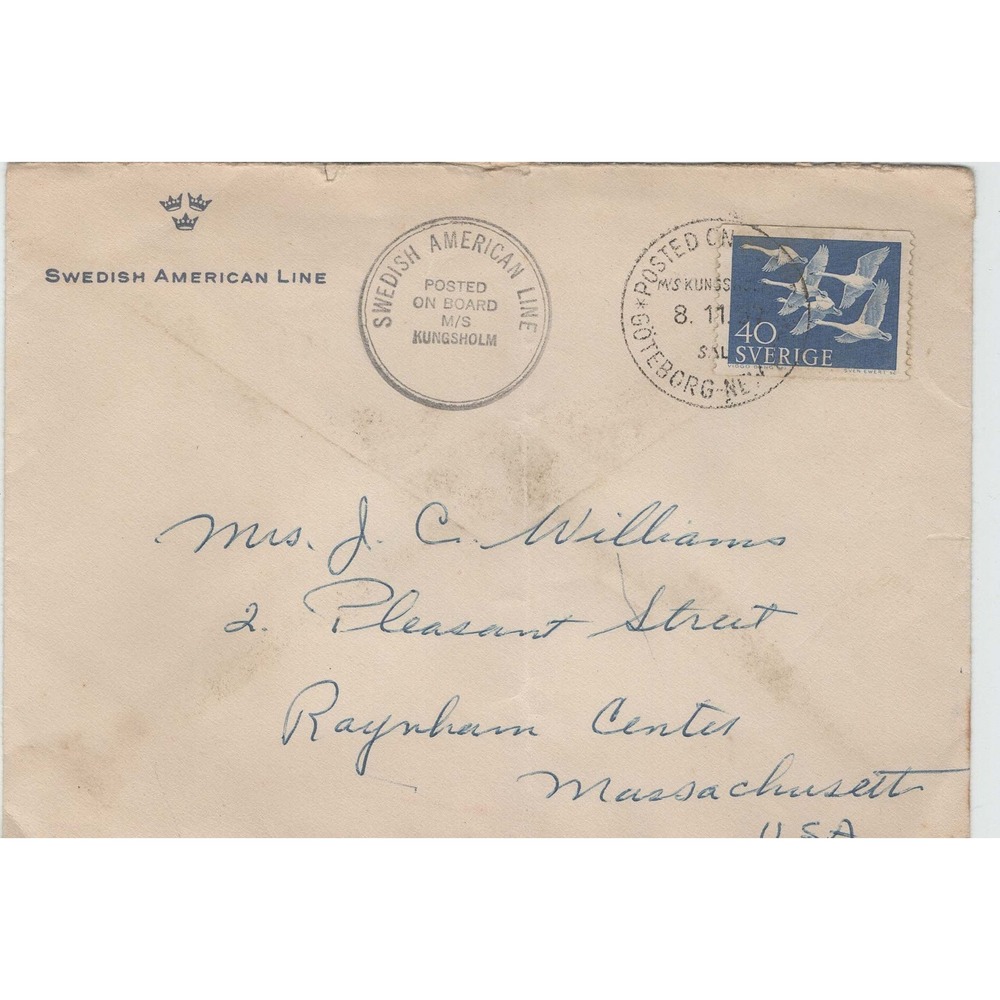 SWEDISH AMERICAN LINE
SWEDISH AMERICAN LINE
POSTED
ON BOARD
M/S
KUNGSHOLM
POSTED ON
M/S KUNGSHOLM
8. 11.
SAL
GÖTEBORG-NEW
40
SVERIGE
Mrs. J. C. Williams
2. Pleasant Street
Raynham Center
Massachusett
USA